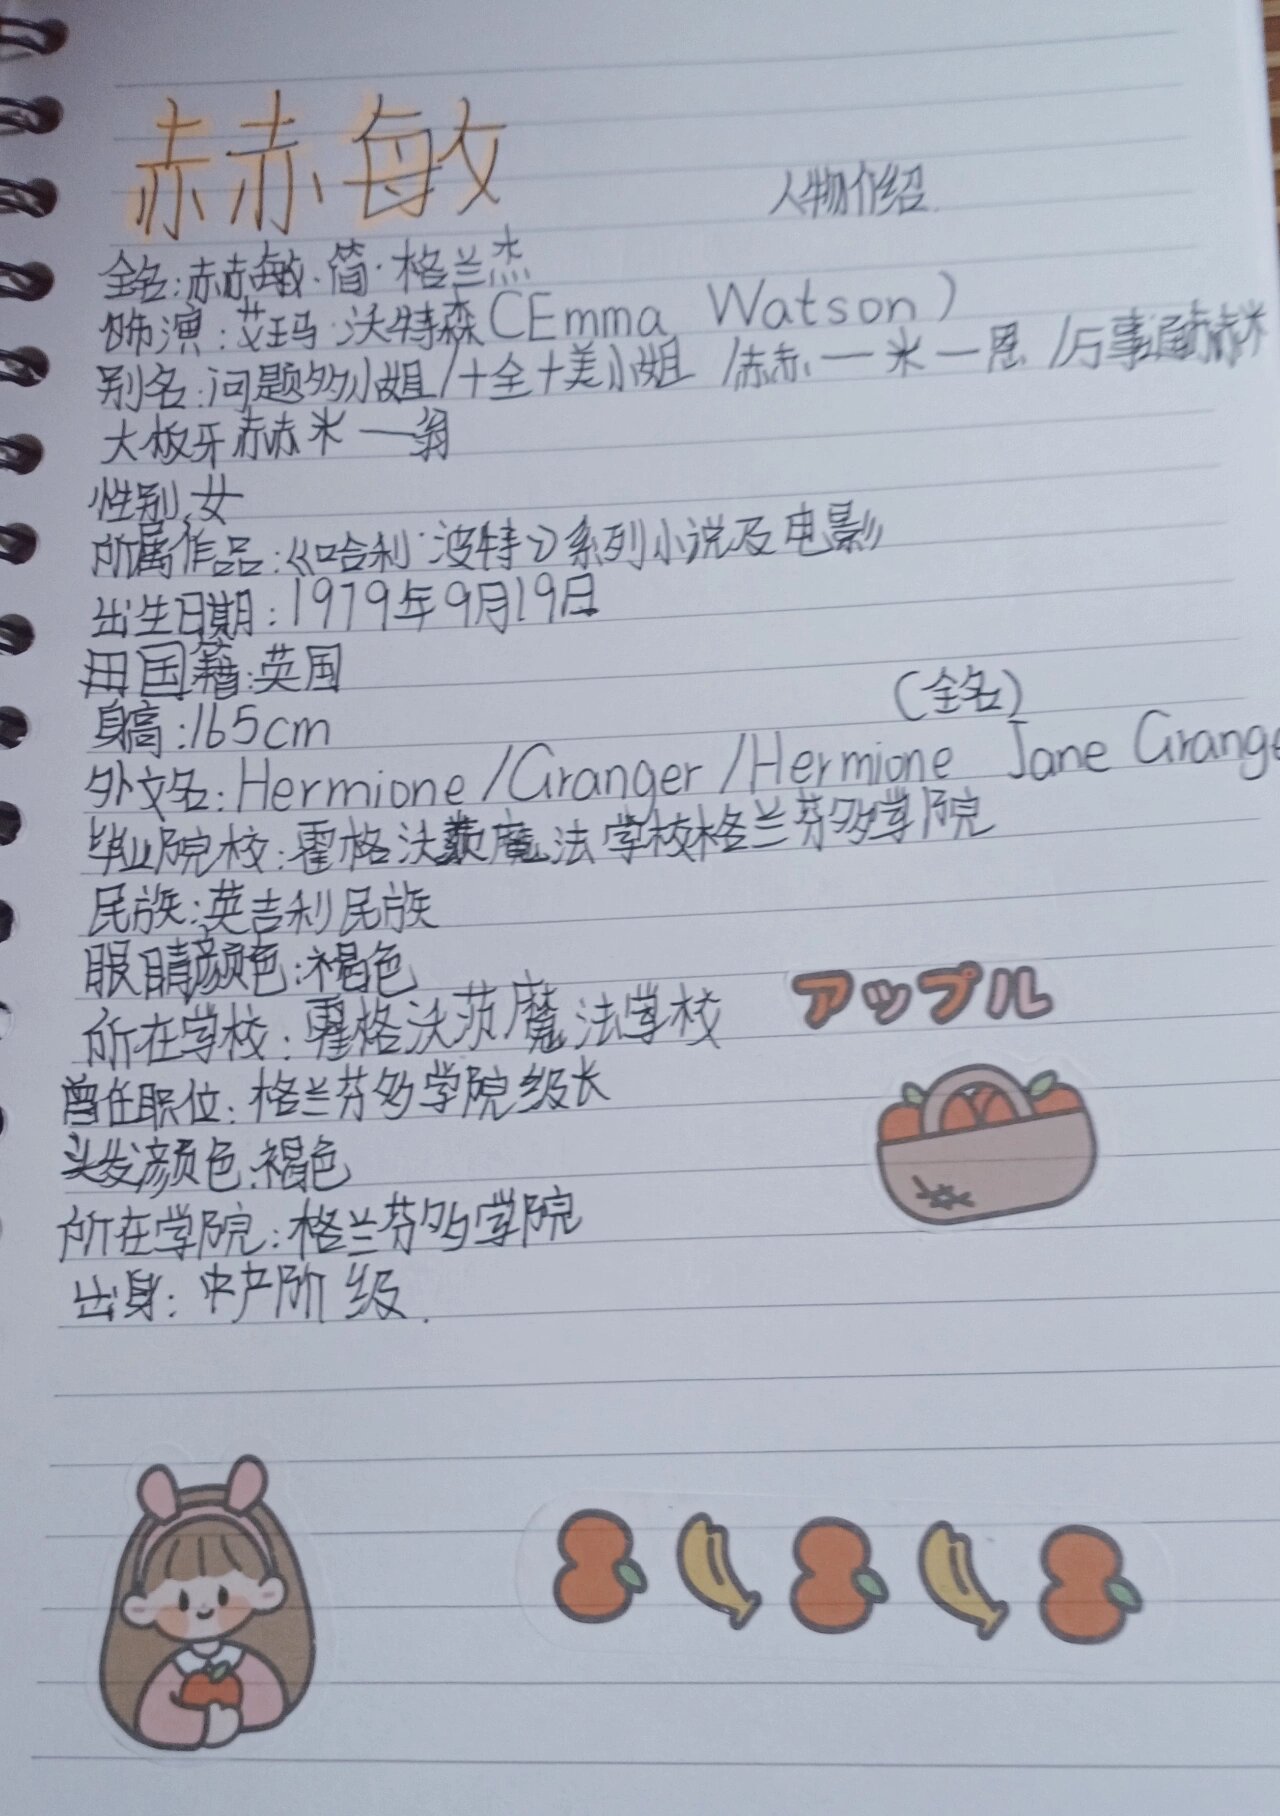 赫敏
人物介绍
全名:赫敏·简·格兰杰
饰演:艾玛·沃特森(Emma Watson)
别名:问题多小姐/十全十美小姐/赫一米一恩/万事通赫米
大板牙赫米一翁
性别:女
所属作品:《哈利·波特》系列小说及电影
出生日期:1979年9月19日
国籍:英国
身高:165cm
(全名)
外文名:Hermione/Granger/Hermione Jane Grange
毕业院校:霍格沃茨魔法学校格兰芬多学院
民族:英吉利民族
眼睛颜色:褐色
アップル
所在学校:霍格沃茨魔法学校
曾任职位:格兰芬多学院级长
头发颜色:褐色
所在学院:格兰芬多学院
出身:中产阶级.